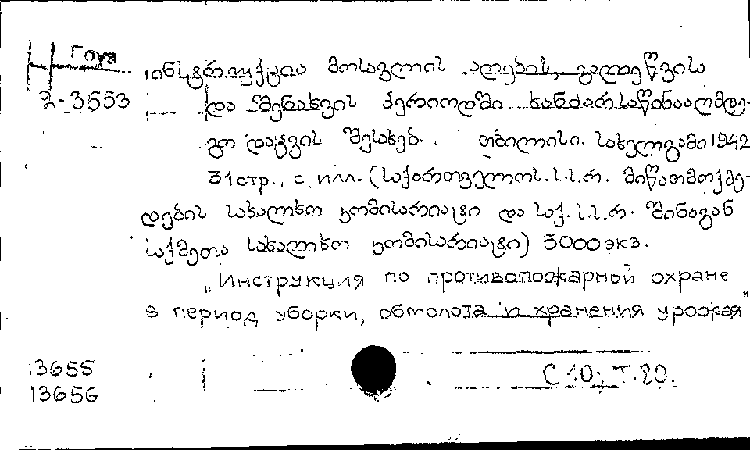 Гопп
2-3553
ინსტრუქცია მოსავლის აღების, გალეწვისა
და შენახვის პერიოდში ხანძარსაწინააღმდე-
გო დაცვის შესახებ. თბილისი. სახელგამი 1942
31 стр., с илл. (საქართველოს.ს.ს.რ. მიწათმოქმე-
დების სახალხო კომისარიატი და საქ.ს.ს.რ. შინაგან
საქმეთა სახალხო კომისარიატი) 3000 экз.
„Инструкция по противопожарной охране
в период уборки, обмолота и хранения урожая"
13655
13656
С 10; Т.20.